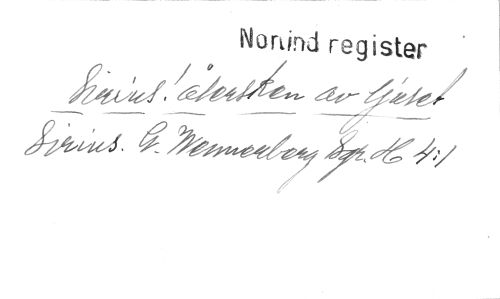 Norlind register
Sirius! återsken av ljuset
Sirius. G. Wennerberg Sgr. H 4:1